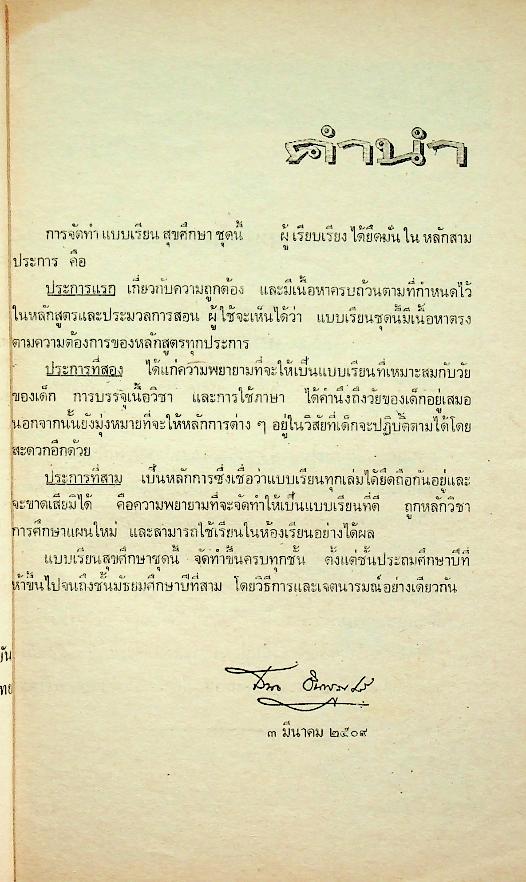 คำนำ
การจัดทำ แบบเรียน สุขศึกษา ชุดนี้ ผู้ เรียบเรียง ได้ยึดมั่น ใน หลักสาม
ประการ คือ
ประการแรก เกี่ยวกับความถูกต้อง และมีเนื้อหาครบถ้วนตามที่กำหนดไว้
ในหลักสูตรและประมวลการสอน ผู้ใช้จะเห็นได้ว่า แบบเรียนชุดนี้มีเนื้อหาตรง
ตามความต้องการของหลักสูตรทุกประการ
ประการที่สอง ได้แก่ความพยายามที่จะให้เป็นแบบเรียนที่เหมาะสมกับวัย
ของเด็ก การบรรจุเนื้อวิชา และการใช้ภาษา ได้คำนึงถึงวัยของเด็กอยู่เสมอ
นอกจากนั้นยังมุ่งหมายที่จะให้หลักการต่าง ๆ อยู่ในวิสัยที่เด็กจะปฏิบัติตามได้โดย
สะดวกอีกด้วย
ประการที่สาม เป็นหลักการซึ่งเชื่อว่าแบบเรียนทุกเล่มได้ยึดถือกันอยู่และ
จะขาดเสียมิได้ คือความพยายามที่จะจัดทำให้เป็นแบบเรียนที่ดี ถูกหลักวิชา
การศึกษาแผนใหม่ และสามารถใช้เรียนในห้องเรียนอย่างได้ผล
แบบเรียนสุขศึกษาชุดนี้ จัดทำขึ้นครบทุกชั้น ตั้งแต่ชั้นประถมศึกษาปีที่
ห้าขึ้นไปจนถึงชั้นมัธยมศึกษาปีที่สาม โดยวิธีการและเจตนารมณ์อย่างเดียวกัน
๓ มีนาคม ๒๕๐๙